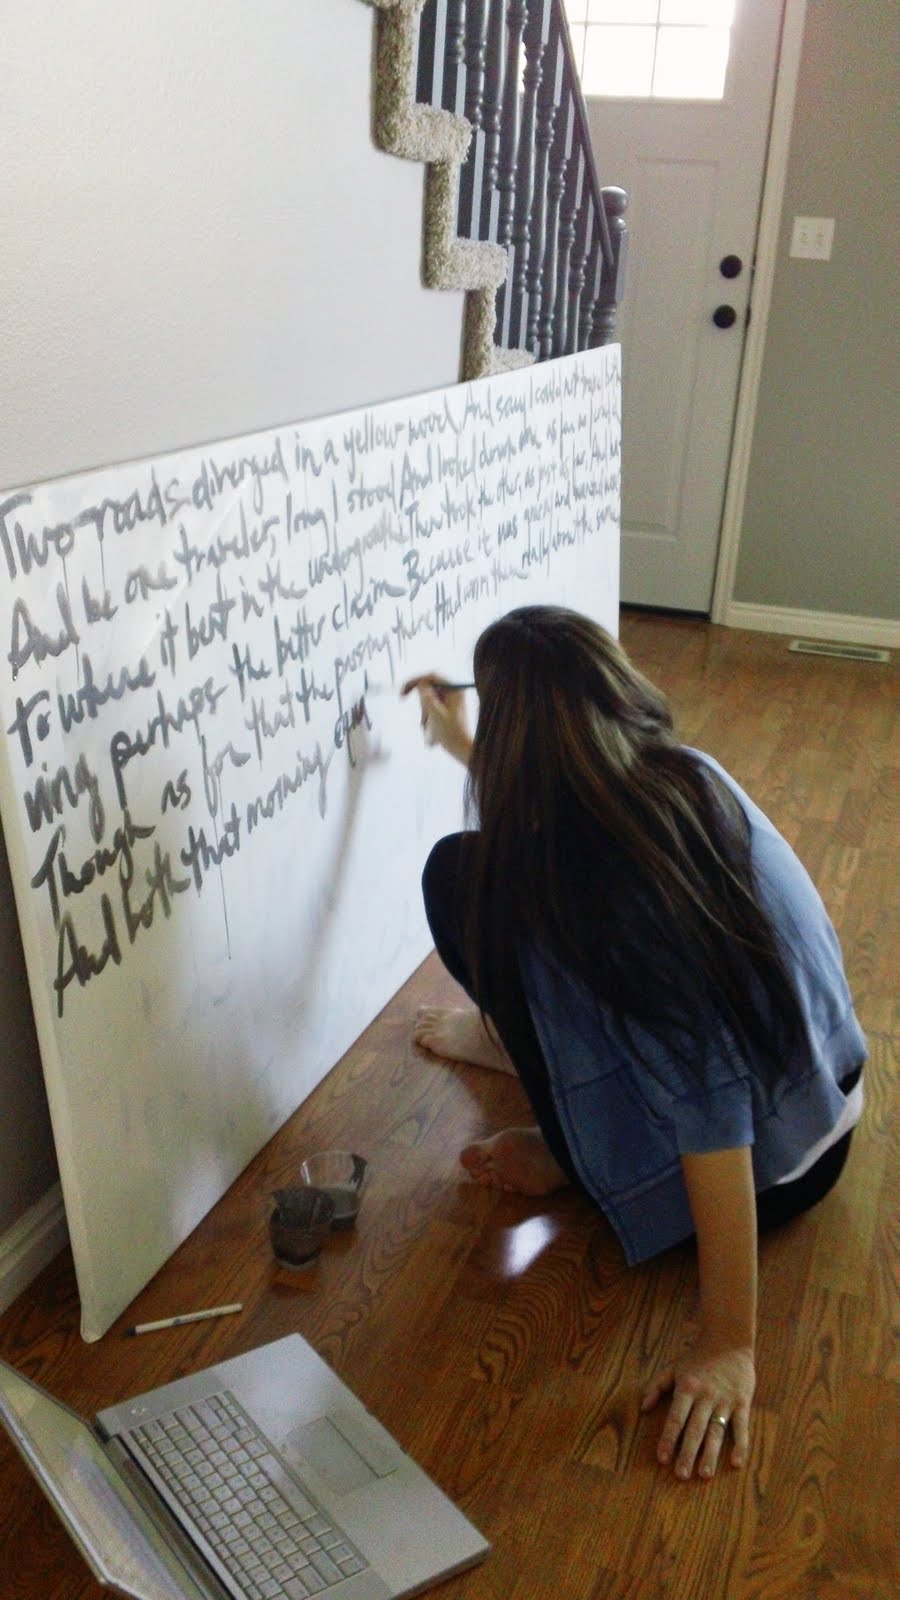 Two roads diverged in a yellow wood, And sorry I could not travel both
And be one traveler, long I stood And looked down one as far as I could
to where it bent in the undergrowth; Then took the other, as just as fair, And
ving perhaps the better claim Because it was grassy and wanted wear,
Though as for that the passing there Had worn them really about the same,
And both that morning equ